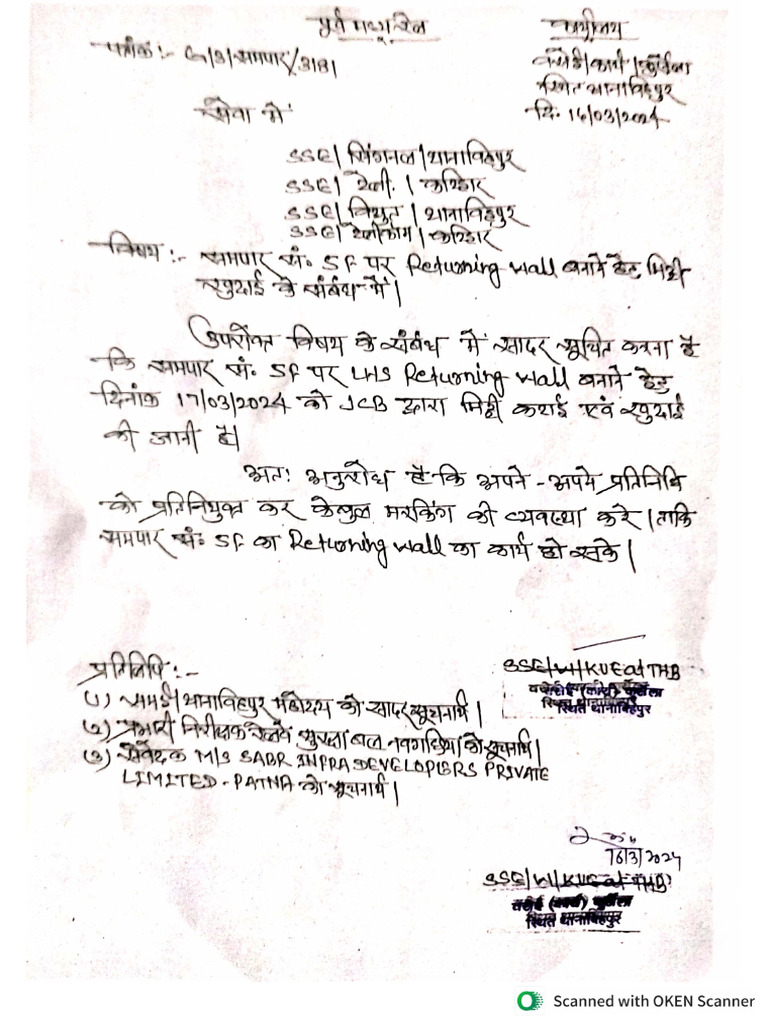 पूर्व मध्य रेल
कार्यालय
पत्रांक:- G/3/समपार/3131
व०से०ई०/कार्य/कुर्सेला
स्थित थानाबिहपुर
दि. 16/03/2024
सेवा में
SSE/ सिगनल/थानाबिहपुर
SSE/ टेली. / कटिहार
SSE/ विधुत / थानाबिहपुर
SSE/ टेलीकाम / कटिहार
विषय:- समपार सं. 5F पर Returning wall बनाने हेतु मिट्टी
खुदाई के संबंध में।
उपरोक्त विषय के संबंध में सादर सूचित करना है
कि समपार सं. 5F पर LHS Returning wall बनाने हेतु
दिनांक 17/03/2024 को JCB द्वारा मिट्टी कटाई एवं खुदाई
की जानी है।
अतः अनुरोध है कि अपने-अपने प्रतिनिधि
को प्रतिनियुक्त कर केबुल मरकिंग की व्यवस्था करे। ताकि
समपार सं. 5F का Returning wall का कार्य हो सके।
SSE/W/KUE at THB
व०से०ई० (कार्य) कुर्सेला
स्थित थानाबिहपुर
प्रतिलिपि:-
(1) समई/थानाबिहपुर महोदय को सादर सूचनार्थ।
(2) प्रभारी निरीक्षक रेलवे सुरक्षा बल नवगछिया को सूचनार्थ।
(3) संवेदक M/S SABR INFRA DEVELOPERS PRIVATE
LIMITED-PATNA को सूचनार्थ।
16/3/2024
SSE/W/KUE at THB
व०से०ई० (कार्य) कुर्सेला
स्थित थानाबिहपुर
Scanned with OKEN Scanner